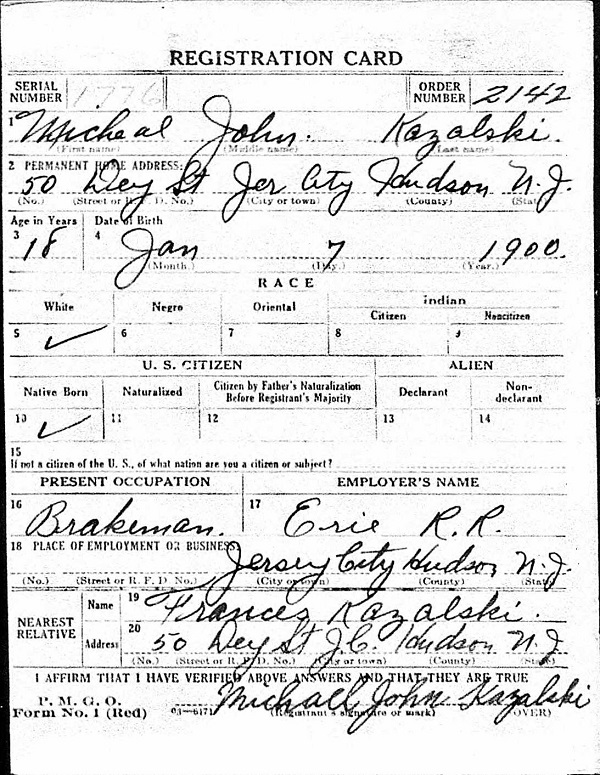 REGISTRATION CARD
SERIAL NUMBER 1776 ORDER NUMBER 2142
1 Micheal John. Kazalski.
(First name) (Middle name) (Last name)
2 PERMANENT HOME ADDRESS:
50 Dey St Jer City Hudson N.J.
(No.) (Street or R. F. D. No.) (City or town) (County) (State)
Age in Years Date of Birth
3 18 4 Jan 7 1900.
(Month.) (Day.) (Year.)
RACE
White Negro Oriental Indian
Citizen Noncitizen
5 ✓ 6 7 8 9
U. S. CITIZEN ALIEN
Native Born Naturalized Citizen by Father's Naturalization Before Registrant's Majority Declarant Non-declarant
10 ✓ 11 12 13 14
15
If not a citizen of the U. S., of what nation are you a citizen or subject?
PRESENT OCCUPATION EMPLOYER'S NAME
16 Brakeman. 17 Erie R.R.
18 PLACE OF EMPLOYMENT OR BUSINESS:
Jersey City Hudson N.J.
(No.) (Street or R. F. D. No.) (City or town) (County) (State)
NEAREST RELATIVE
Name 19 Frances Kazalski.
Address 20 50 Dey St J.C. Hudson N.J
(No.) (Street or R. F. D. No.) (City or town) (County) (State)
I AFFIRM THAT I HAVE VERIFIED ABOVE ANSWERS AND THAT THEY ARE TRUE
P. M. G. O.
Form No. 1 (Red) 03—6171 Michael John Kazalski
(Registrant's signature or mark) (OVER)